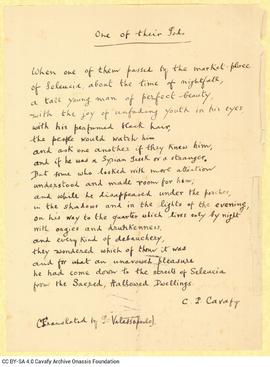 One of their Gods.
When one of them passed by the market-place
of Seleucia, about the time of nightfall,
a tall young man of perfect beauty,
with the joy of unfading youth in his eyes
with his perfumed black hair,
the people would watch him
and ask one another if they knew him,
and if he was a Syrian Greek or a stranger.
But some who looked with more attention
understood and made room for him,
and while he disappeared under the porches,
in the shadows and in the lights of the evening,
on his way to the quarter which lives only by night
with orgies and drunkenness,
and every kind of debauchery,
they wondered which of them it was
and for what an unavowed pleasure
he had come down to the streets of Seleucia
from the Sacred, Hallowed Dwellings.
C. P. Cavafy
(Translated by G. Valassopoulo)
CC BY-SA 4.0 Cavafy Archive Onassis Foundation